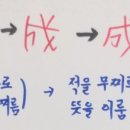 → 成 → 成
로 → 적을 무찌르
러름) 뜻을 이룸